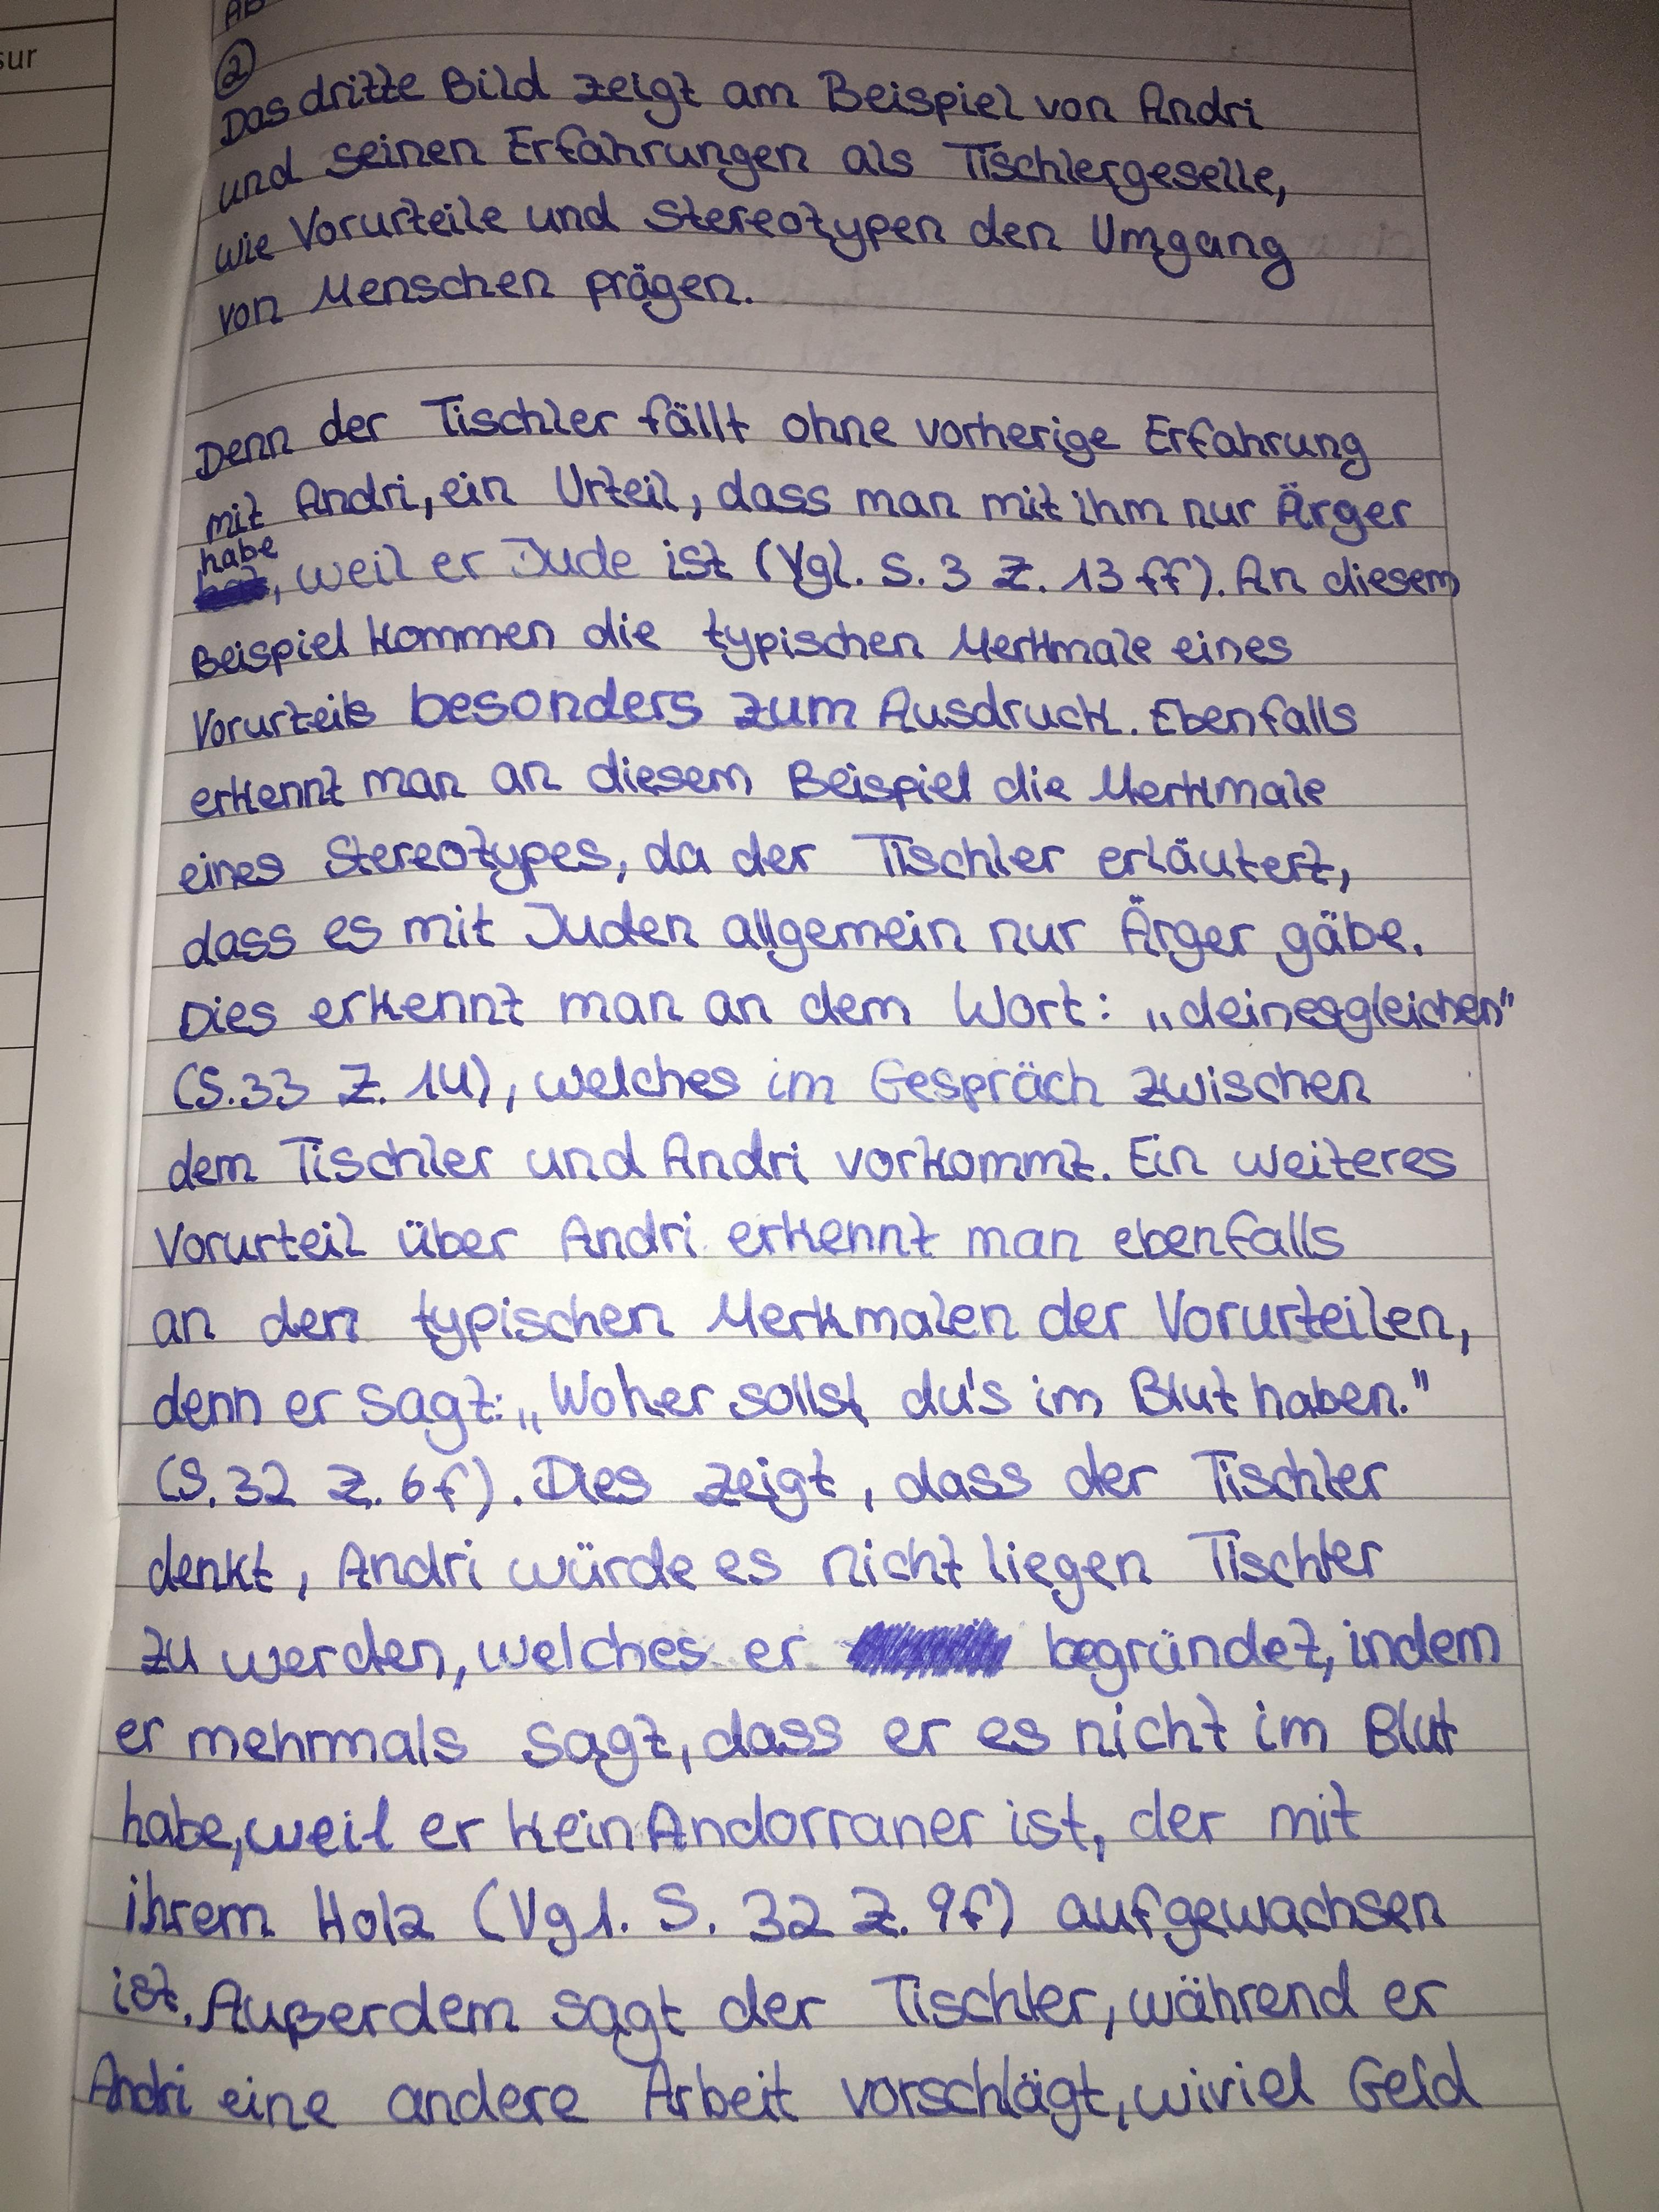 AB
sur
②
Das dritte Bild zeigt am Beispiel von Andri
und seinen Erfahrungen als Tischlergeselle,
wie Vorurteile und Stereotypen den Umgang
von Menschen prägen.
Denn der Tischler fällt ohne vorherige Erfahrung
mit Andri, ein Urteil, dass man mit ihm nur Ärger
habe
, weil er Jude ist (Vgl. S. 3 Z. 13 ff). An diesem
Beispiel kommen die typischen Merkmale eines
Vorurteils besonders zum Ausdruck. Ebenfalls
erkennt man an diesem Beispiel die Merkmale
eines Stereotypes, da der Tischler erläutert,
dass es mit Juden allgemein nur Ärger gäbe.
Dies erkennt man an dem Wort: „deinesgleichen"
(S. 33 Z. 14), welches im Gespräch zwischen
dem Tischler und Andri vorkommt. Ein weiteres
Vorurteil über Andri erkennt man ebenfalls
an den typischen Merkmalen der Vorurteilen,
denn er sagt: „Woher sollst du's im Blut haben."
(S. 32 Z. 6f). Dies zeigt, dass der Tischler
denkt, Andri würde es nicht liegen Tischler
zu werden, welches er begründet, indem
er mehrmals sagt, dass er es nicht im Blut
habe, weil er kein Andorraner ist, der mit
ihrem Holz (Vgl. S. 32 Z. 9f) aufgewachsen
ist. Außerdem sagt der Tischler, während er
Andri eine andere Arbeit vorschlägt, wiviel Geld